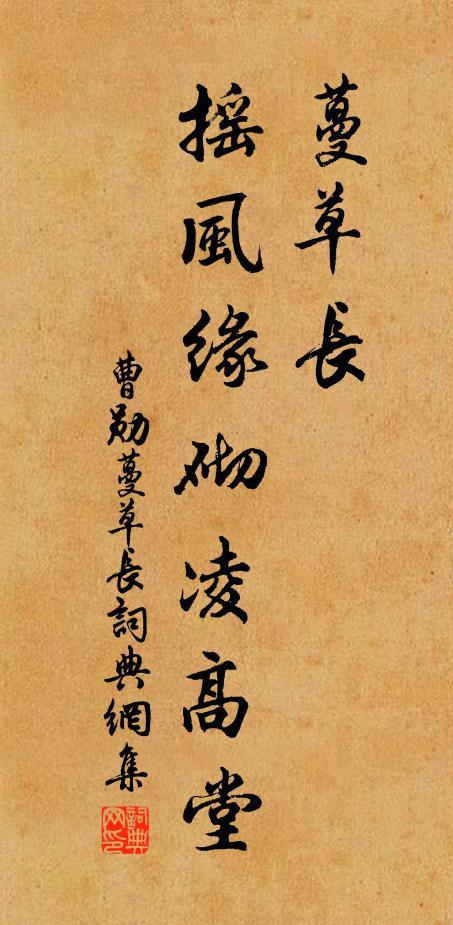 蔓草長
摇風緣砌凌高堂
曹勛蔓草長詞典網集
詞典网印